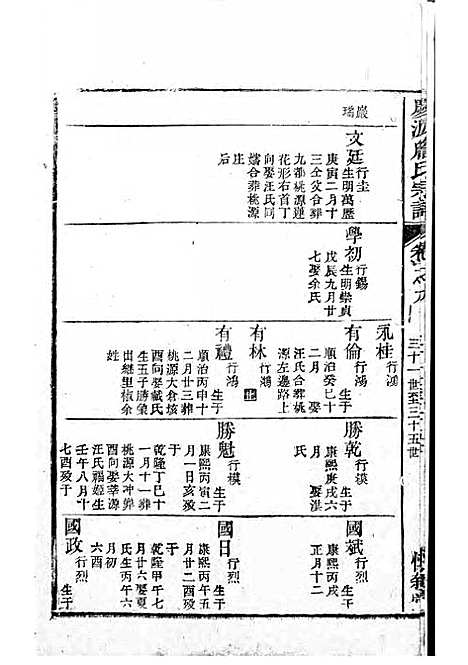 慶源詹氏宗譜
卷之九
三十一世至三十五世
巖
璠
文廷
行圭
生明萬歷
庚寅二月十
三仝父合葬
九都桃源蓮
花形右首丁
向娶汪氏同
合葬桃源
庄
后
學初
行錫
生明崇貞
戊辰九月廿
七娶余氏
永桂
行鴻
有倫
行鴻
生于
順治癸巳十
二月 娶
汪氏合葬桃
源左邊路上
有林
行鴻
止
有禮
行鴻
生于
順治丙申十
二月廿三葬
桃源大倉垓
生五子勝榮
出繼里椒余
姓
勝乾
行模
生于
康熙庚戌六
月 娶混
氏
勝魁
行模
生于
康熙丙寅二
月一日亥歿
于
乾隆丁巳十
一月十一葬
桃源大冲葬
酉向娶莘源
汪氏福姫生
壬午八月十
七酉歿于
國斌
行烈
生于
康熙丙戌
正月十二
國日
行烈
生于
康熙丙午五
月廿二酉歿
于
乾隆甲午七
月廿六娶夏
氏生丙午六
月初
六酉
國政
行烈
生于